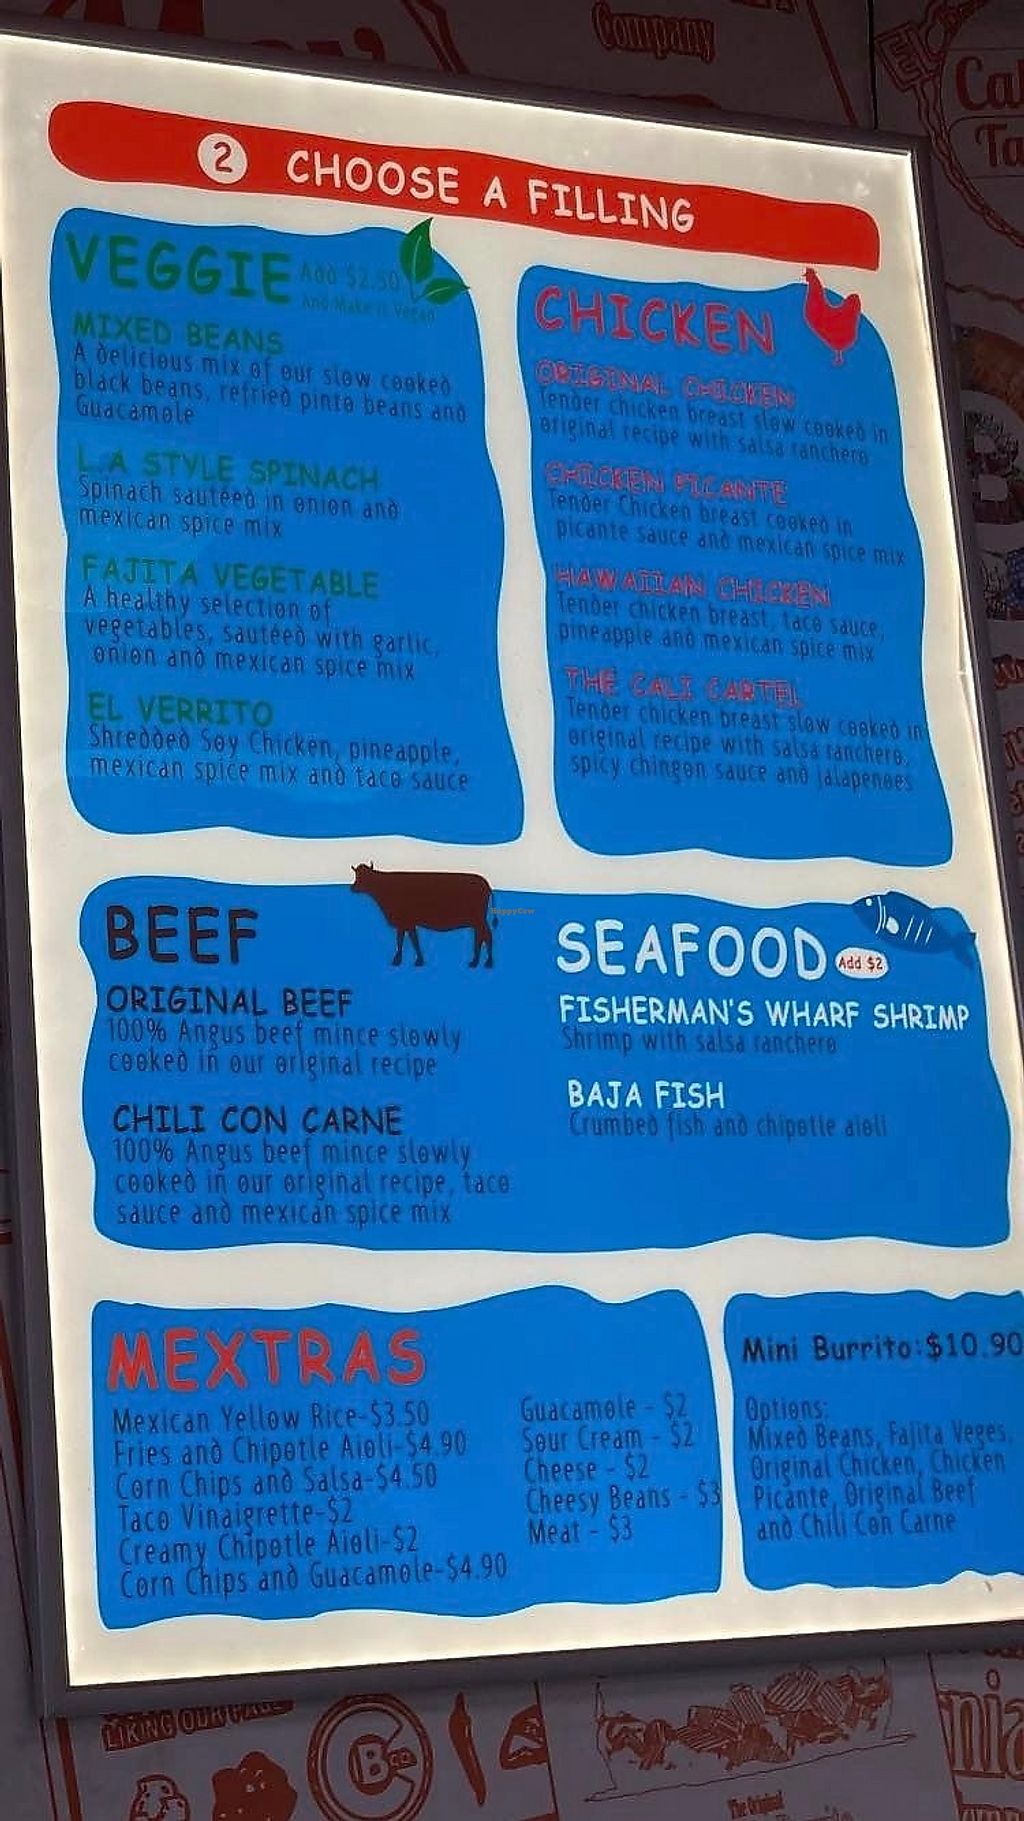 Company
Cal
Ta
2 CHOOSE A FILLING
VEGGIE Add $2.50
And Make it Vegan
MIXED BEANS
A delicious mix of our slow cooked
black beans, refried pinto beans and
Guacamole
L.A STYLE SPINACH
Spinach sautéed in onion and
mexican spice mix
FAJITA VEGETABLE
A healthy selection of
vegetables, sautéed with garlic,
onion and mexican spice mix
EL VERRITO
Shredded Soy Chicken, pineapple,
mexican spice mix and taco sauce
CHICKEN
ORIGINAL CHICKEN
Tender chicken breast slow cooked in
original recipe with salsa ranchero
CHICKEN PICANTE
Tender Chicken breast cooked in
picante sauce and mexican spice mix
HAWAIIAN CHICKEN
Tender chicken breast, taco sauce,
pineapple and mexican spice mix
THE CALI CARTEL
Tender chicken breast slow cooked in
original recipe with salsa ranchero,
spicy chingon sauce and jalapenoes
BEEF
ORIGINAL BEEF
100% Angus beef mince slowly
cooked in our original recipe
CHILI CON CARNE
100% Angus beef mince slowly
cooked in our original recipe, taco
sauce and mexican spice mix
HappyCow
SEAFOOD Add $2
FISHERMAN'S WHARF SHRIMP
Shrimp with salsa ranchero
BAJA FISH
Crumbed fish and chipotle aioli
MEXTRAS
Mexican Yellow Rice-$3.50
Fries and Chipotle Aioli-$4.90
Corn Chips and Salsa-$4.50
Taco Vinaigrette-$2
Creamy Chipotle Aioli-$2
Corn Chips and Guacamole-$4.90
Guacamole - $2
Sour Cream - $2
Cheese - $2
Cheesy Beans - $3
Meat - $3
Mini Burrito:$10.90
Options:
Mixed Beans, Fajita Veges,
Original Chicken, Chicken
Picante, Original Beef
and Chili Con Carne
LIKING OUR PAGE
CBCo
nia
The Original